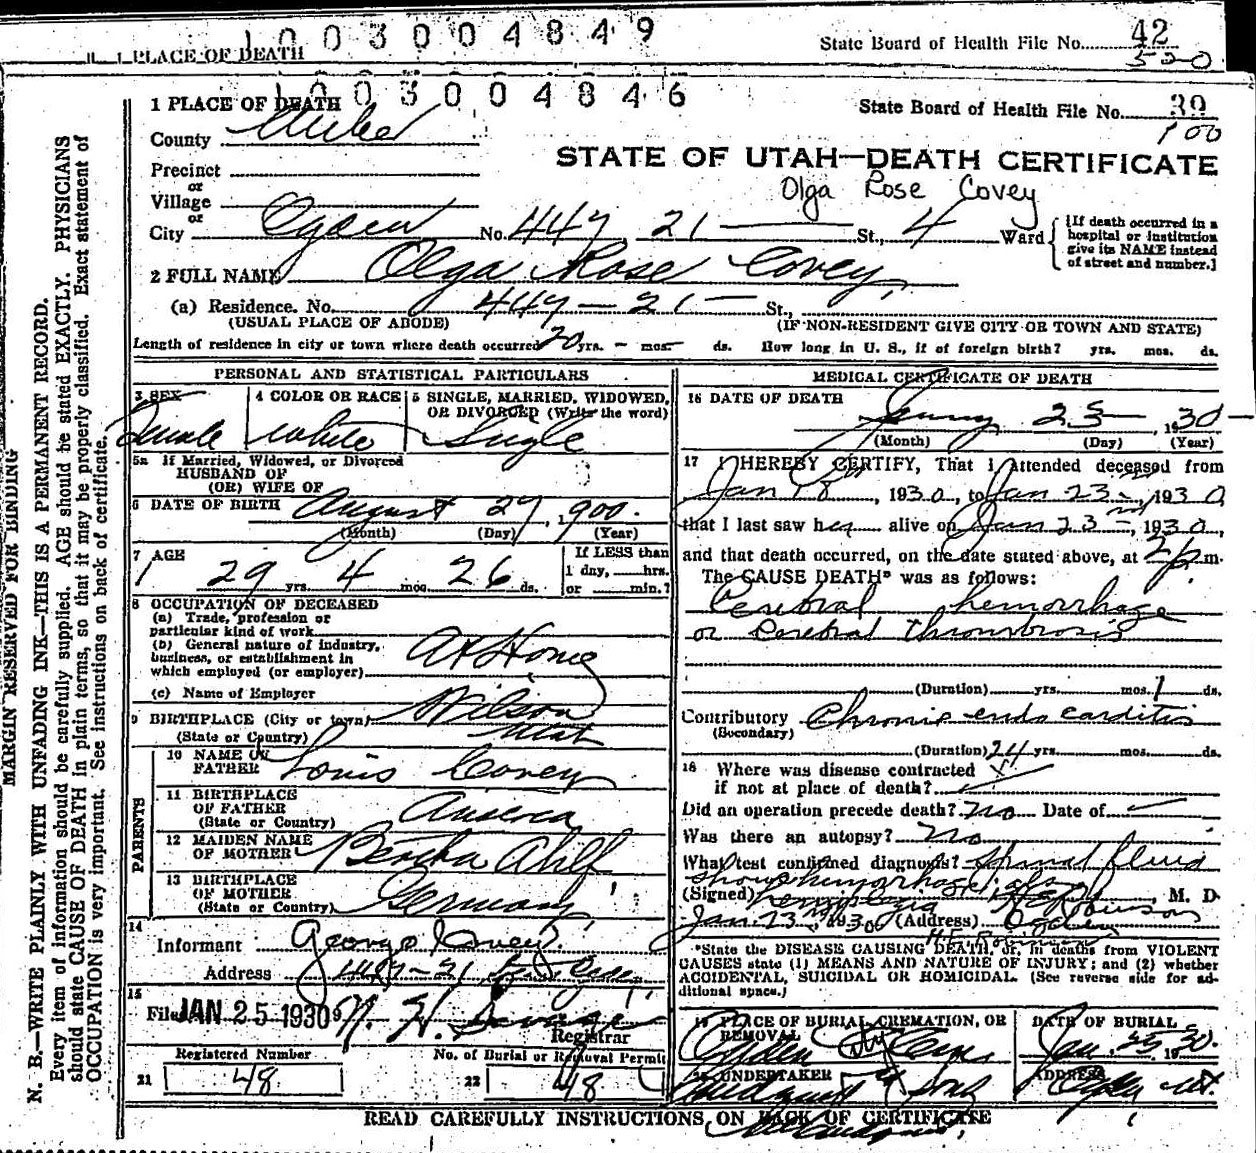 1003004849
State Board of Health File No. 42
1 PLACE OF DEATH
520
1003004846
1 PLACE OF DEATH
State Board of Health File No. 39
100
County
STATE OF UTAH—DEATH CERTIFICATE
Precinct
or
Olga Rose Covey
Village
or
City Ogden No. 447 21 St., 4 Ward
[If death occurred in a hospital or institution give its NAME instead of street and number.]
2 FULL NAME Olga Rose Covey
(a) Residence. No. 447 — 21 — St.,
(USUAL PLACE OF ABODE) (IF NON-RESIDENT GIVE CITY OR TOWN AND STATE)
Length of residence in city or town where death occurred 20 yrs. - mos. ds. How long in U. S., if of foreign birth? yrs. mos. ds.
PERSONAL AND STATISTICAL PARTICULARS
3 SEX 4 COLOR OR RACE 5 SINGLE, MARRIED, WIDOWED, OR DIVORCED (Write the word)
Female White Single
5a If Married, Widowed, or Divorced
HUSBAND OF
(OR) WIFE OF
6 DATE OF BIRTH August 27, 1900.
(Month) (Day) (Year)
7 AGE
29 yrs. 4 mos. 26 ds.
If LESS than
1 day, hrs.
or min.?
8 OCCUPATION OF DECEASED
(a) Trade, profession or
particular kind of work
(b) General nature of industry,
business, or establishment in
which employed (or employer) At Home
(c) Name of Employer
9 BIRTHPLACE (City or town) Wilson
(State or Country) Utah
PARENTS
10 NAME OF
FATHER Louis Covey
11 BIRTHPLACE
OF FATHER
(State or Country) America
12 MAIDEN NAME
OF MOTHER Bertha Ahlf
13 BIRTHPLACE
OF MOTHER
(State or Country) Germany
14
Informant George Covey
Address 447-21
15
Filed JAN 25 1930
Registrar
Registered Number No. of Burial or Removal Permit
21 48 22 48
MEDICAL CERTIFICATE OF DEATH
16 DATE OF DEATH
23 1930
(Month) (Day) (Year)
17 I HEREBY CERTIFY, That I attended deceased from
Jan 18, 1930, to Jan 23, 1930
that I last saw her alive on Jan 23, 1930,
and that death occurred, on the date stated above, at 2 p m.
The CAUSE DEATH* was as follows:
Cerebral hemorrhage
or Cerebral thrombrosis
(Duration) yrs. mos. 1 ds.
Contributory Chronic endocarditis
(Secondary)
(Duration) 24 yrs. mos. ds.
18 Where was disease contracted
if not at place of death?
Did an operation precede death? no Date of
Was there an autopsy? No
What test confirmed diagnosis? Spinal fluid
shows hemorrhage also
(Signed) hemiplegia M. D.
Jan 23, 1930 (Address) Ogden
*State the DISEASE CAUSING DEATH, or, in deaths from VIOLENT
CAUSES state (1) MEANS AND NATURE OF INJURY; and (2) whether
ACCIDENTAL, SUICIDAL OR HOMICIDAL. (See reverse side for ad-
ditional space.)
19 PLACE OF BURIAL, CREMATION, OR REMOVAL DATE OF BURIAL
Ogden City Cem Jan. 25 1930.
20 UNDERTAKER ADDRESS
& Sons Ogden Ut.
READ CAREFULLY INSTRUCTIONS ON BACK OF CERTIFICATE
MARGIN RESERVED FOR BINDING
N. B.—WRITE PLAINLY WITH UNFADING INK—THIS IS A PERMANENT RECORD.
Every item of information should be carefully supplied. AGE should be stated EXACTLY. PHYSICIANS
should state CAUSE OF DEATH in plain terms, so that it may be properly classified. Exact statement of
OCCUPATION is very important. See instructions on back of certificate.